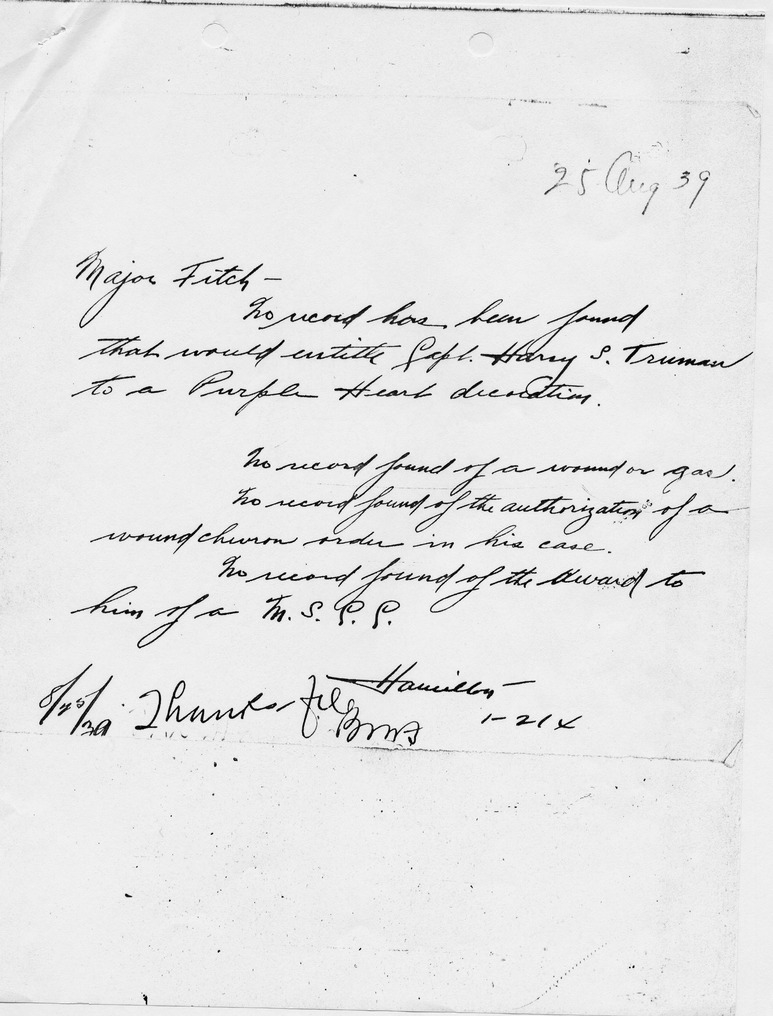 25 Aug 39
Major Fitch-
No record has been found
that would entitle Capt. Harry S. Truman
to a Purple Heart decoration.
No record found of a wound or gas.
No record found of the authorization of a
wound chevron order in his case.
No record found of the award to
him of a M.S.C.C.
Hamilton
1-214
8/25/39 Thanks file